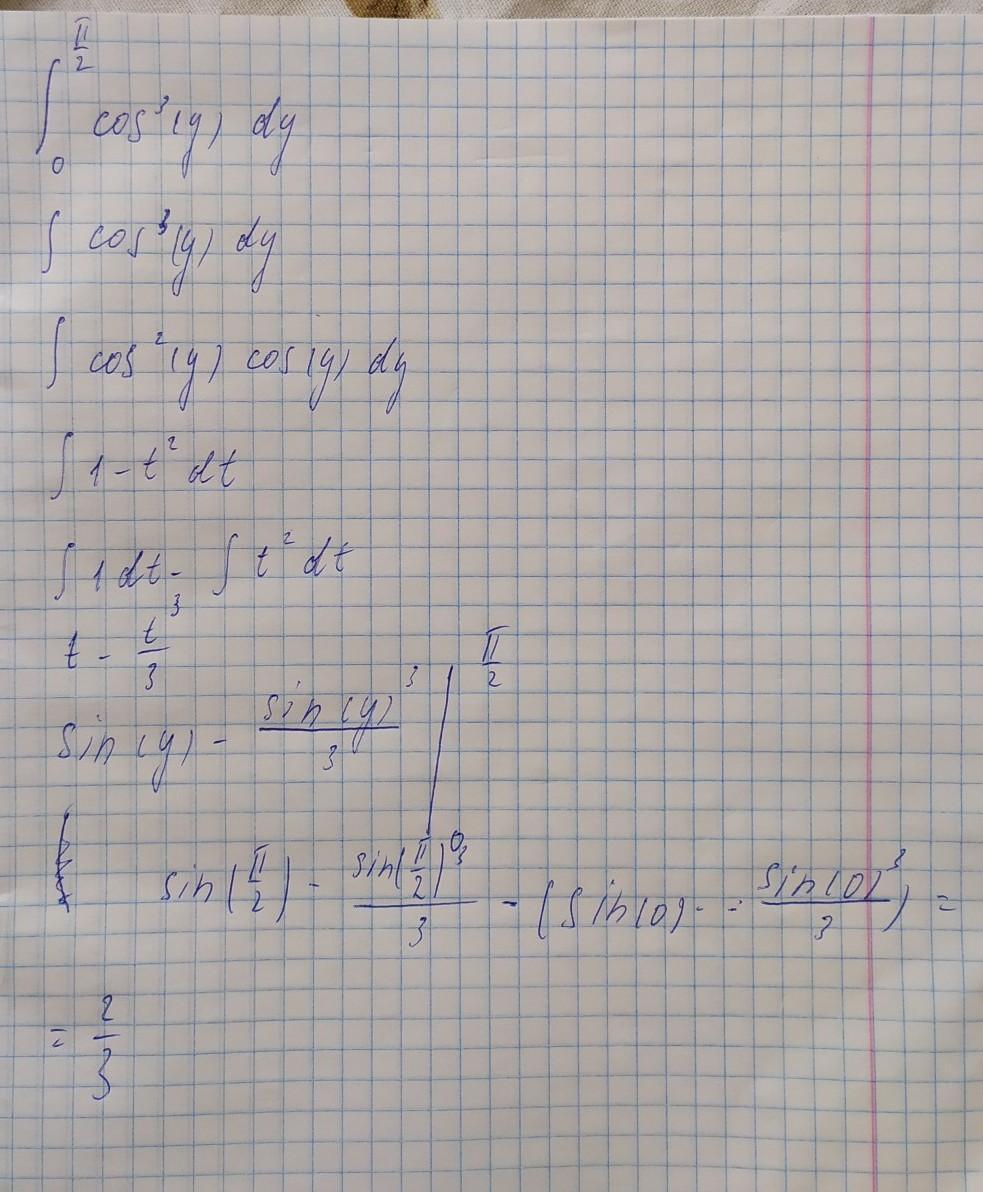 ∫₀^(π/2) cos³(y) dy
∫ cos³(y) dy
∫ cos²(y) cos(y) dy
∫ 1 - t² dt
∫ 1 dt - ∫ t² dt
t - t³/3
sin(y) - sin(y)³/3 |₀^(π/2)
sin(π/2) - sin(π/2)³/3 - (sin(0) - sin(0)³/3) =
= 2/3